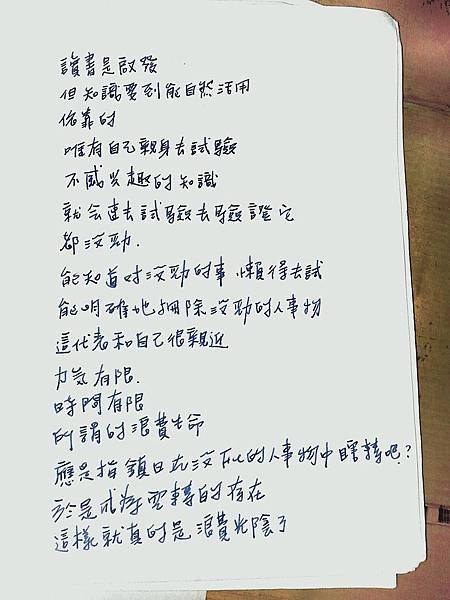 讀書是啟發
但知識要到能自然活用
依靠的
唯有自己親身去試驗
不感兴趣的知識
就会連去試驗去驗證它
都沒勁.
能知道对沒勁的事 懶得去試
能明確地掃除沒勁的人事物
這代表和自己很親近
力氣有限.
時間有限
所謂的浪費生命
應是指鎮日在沒勁的人事物中瞎轉吧?
於是成為空轉的存在
這樣就真的是浪費光陰了